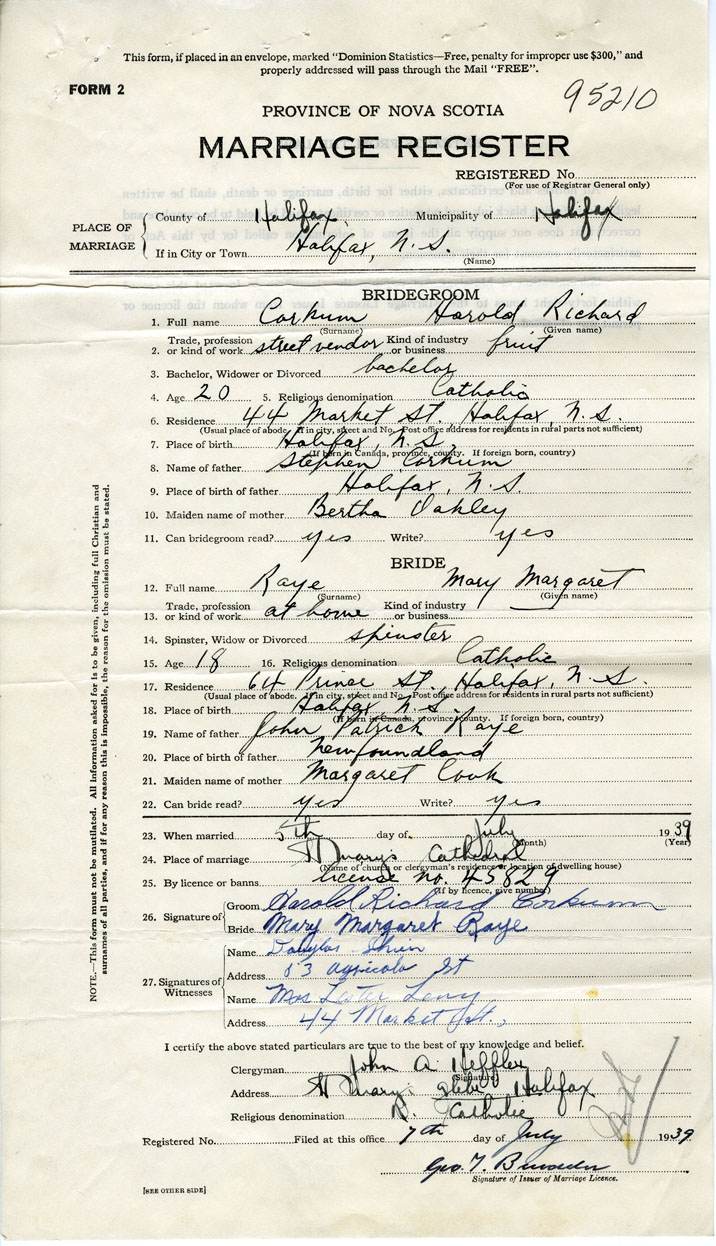 This form, if placed in an envelope, marked "Dominion Statistics—Free, penalty for improper use $300," and
properly addressed will pass through the Mail "FREE".
FORM 2
95210
PROVINCE OF NOVA SCOTIA
MARRIAGE REGISTER
REGISTERED No.
(For use of Registrar General only)
PLACE OF MARRIAGE
County of Halifax, Municipality of Halifax
If in City or Town Halifax, N.S.
(Name)
BRIDEGROOM
1. Full name Corkum Harold Richard
(Surname) (Given name)
2. Trade, profession or kind of work street vendor Kind of industry or business fruit
3. Bachelor, Widower or Divorced bachelor
4. Age 20 5. Religious denomination Catholic
6. Residence 44 Market St. Halifax, N.S.
(Usual place of abode. If in city, street and No. Post office address for residents in rural parts not sufficient)
7. Place of birth Halifax, N.S.
(If born in Canada, province, county. If foreign born, country)
8. Name of father Stephen Corkum
9. Place of birth of father Halifax, N.S.
10. Maiden name of mother Bertha Oakley
11. Can bridegroom read? yes Write? yes
BRIDE
12. Full name Raye Mary Margaret
(Surname) (Given name)
13. Trade, profession or kind of work at home Kind of industry or business
14. Spinster, Widow or Divorced spinster
15. Age 18 16. Religious denomination Catholic
17. Residence 64 Prince St., Halifax, N.S.
(Usual place of abode. If in city, street and No. Post office address for residents in rural parts not sufficient)
18. Place of birth Halifax, N.S.
(If born in Canada, province, county. If foreign born, country)
19. Name of father John Patrick Raye
20. Place of birth of father Newfoundland
21. Maiden name of mother Margaret Cook
22. Can bride read? yes Write? yes
23. When married 5th day of July 1939
(Month) (Year)
24. Place of marriage St Mary's Cathedral
(Name of church or clergyman's residence or location of dwelling house)
25. By licence or banns license no. 43829
(If by licence, give number)
26. Signature of
Groom Harold Richard Corkum
Bride Mary Margaret Raye
27. Signatures of Witnesses
Name Douglas
Address 53 Agricola St
Name Mrs Lester Levy
Address 44 Market St.,
I certify the above stated particulars are true to the best of my knowledge and belief.
Clergyman John A. Heffler
(Signature)
Address St Mary's Glebe Halifax
Religious denomination R. Catholic
Registered No. Filed at this office 7th day of July 1939
Geo. T.
Signature of Issuer of Marriage Licence.
[SEE OTHER SIDE]
NOTE.—This form must not be mutilated. All information asked for is to be given, including full Christian and
surnames of all parties, and if for any reason this is impossible, the reason for the omission must be stated.